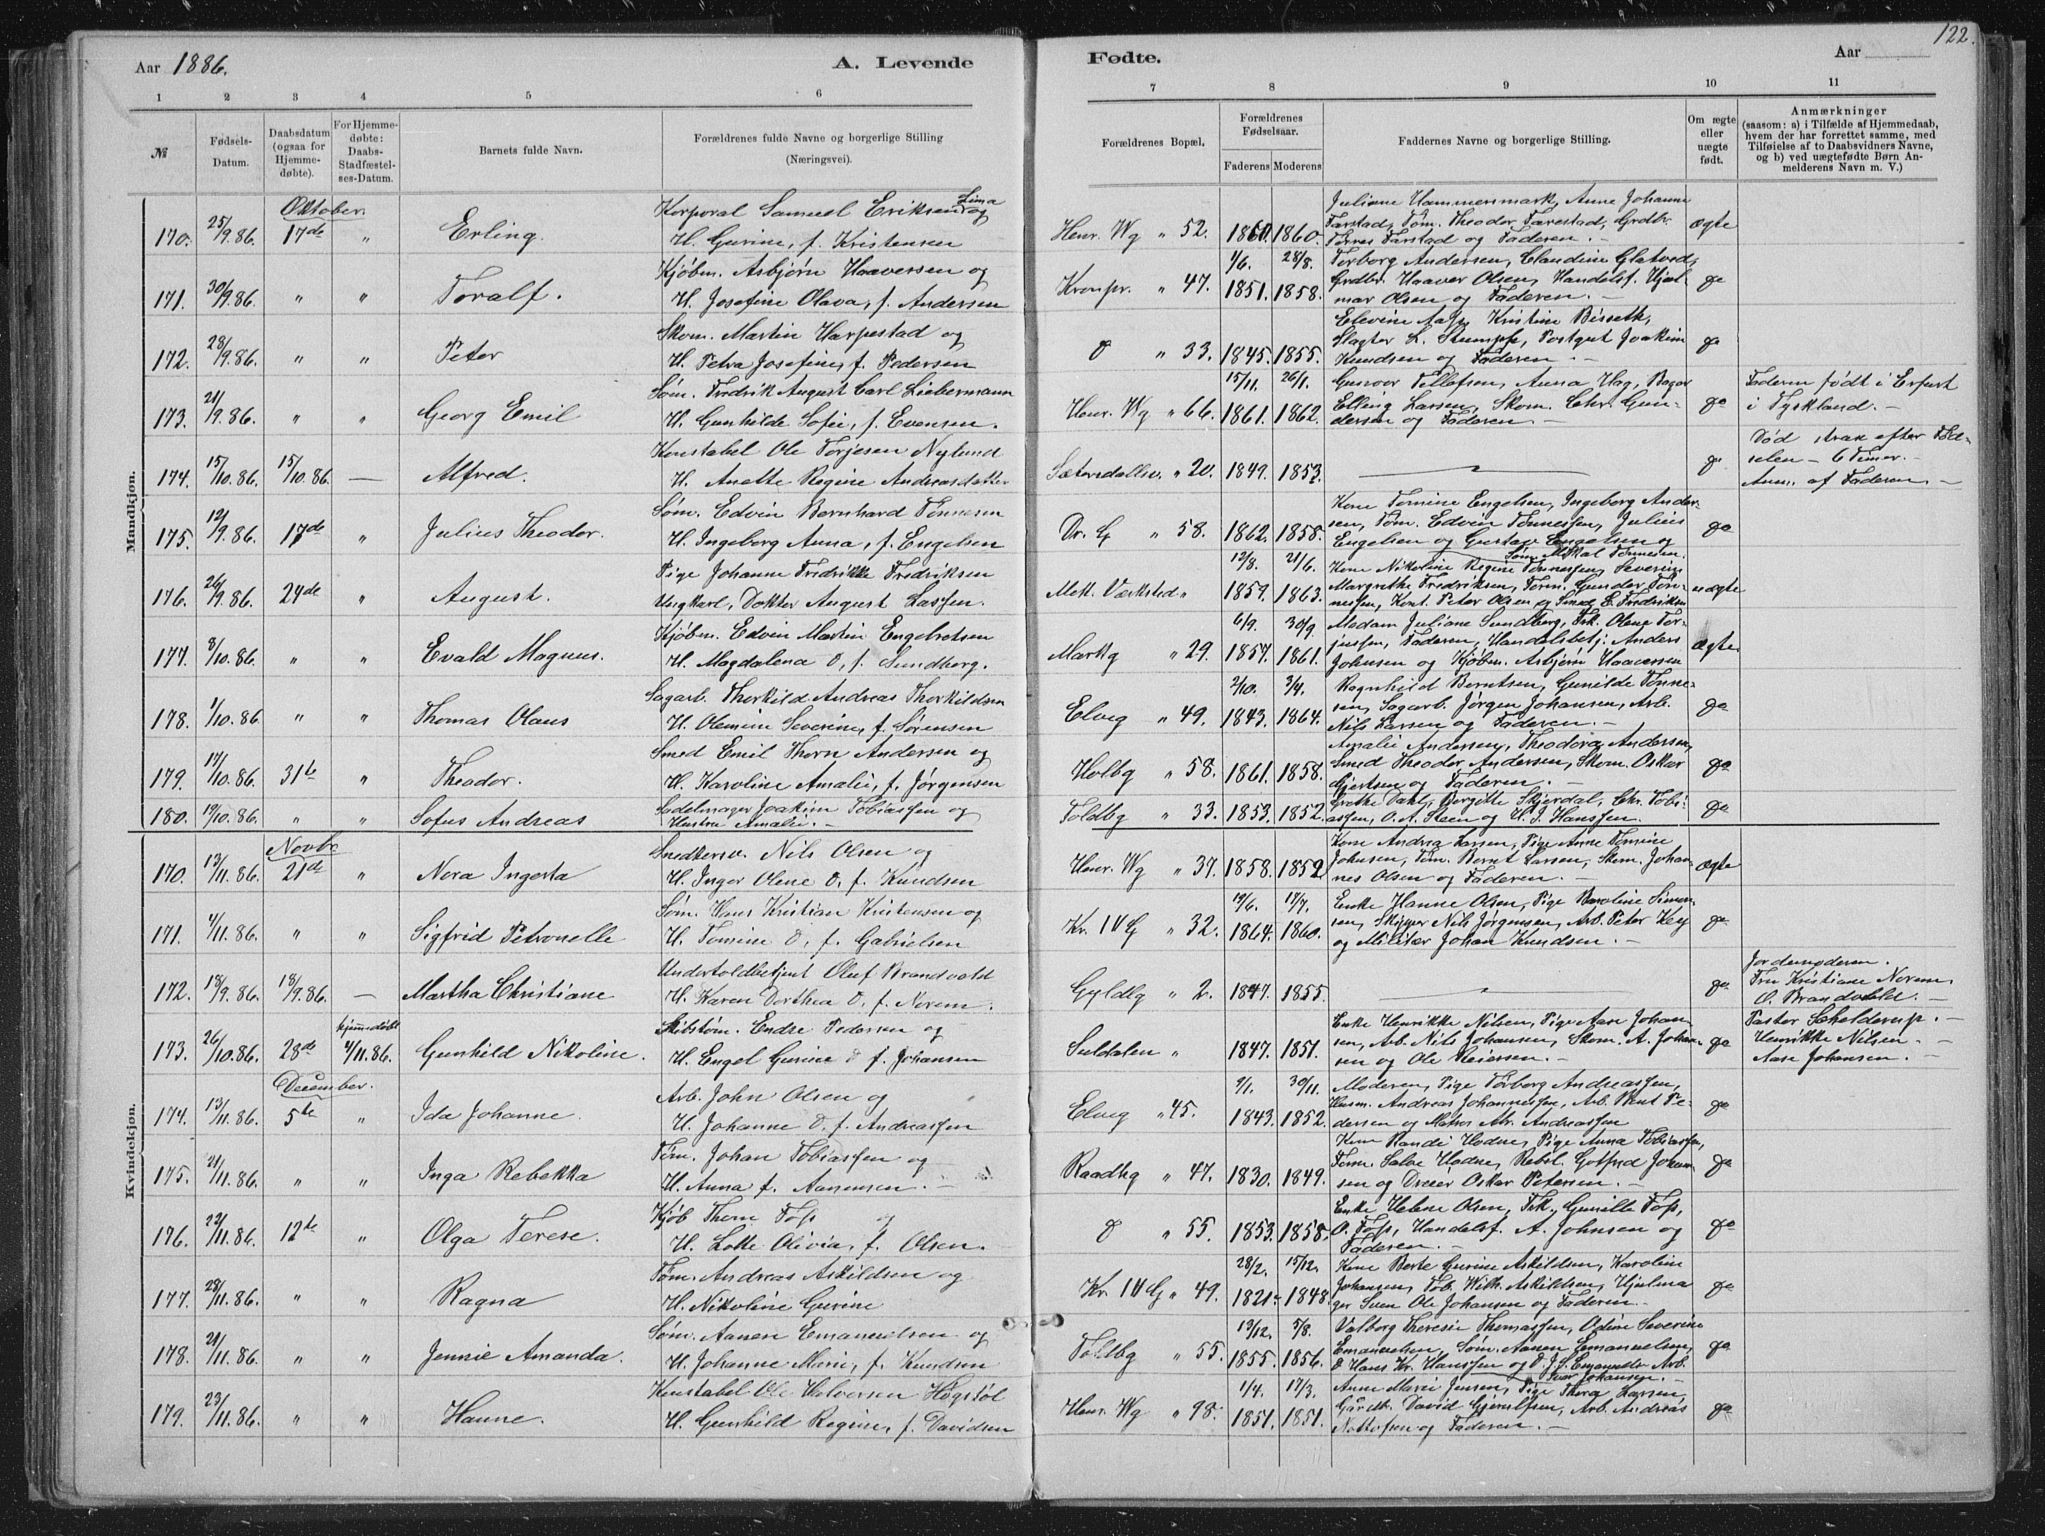 Aar 1886.
A. Levende
Fødte.
Aar
122.
1 2 3 4 5 6 7 8 9 10 11
№
Fødsels-Datum.
Daabsdatum (ogsaa for Hjemmedøbte).
For Hjemmedøbte: Daabs-Stadfæstelses-Datum.
Barnets fulde Navn.
Forældrenes fulde Navne og borgerlige Stilling (Næringsvei).
Forældrenes Bopæl.
Forældrenes Fødselsaar.
Faderens Moderens
Faddernes Navne og borgerlige Stilling.
Om ægte eller uægte født.
Anmærkninger
(saasom: a) i Tilfælde af Hjemmedaab, hvem der har forrettet samme, med Tilføielse af to Daabsvidners Navne, og b) ved uægtefødte Børn Anmelderens Navn m. V.)
Mandkjøn.
Oktober.
170. 25/9.86. 17de " Erling. Korporal Samuel Eriksen Lima og
H. Gurine, f. Kristensen
Henr. Wg " 52. 1860. Juliane Hammersmark, Anne Johanne
Farstad, Tøm. Theodor Farestad, Grdbr.
Tørres Farstad og Faderen. — ægte
171. 30/9.86. " " Toralf. Kjøbm. Asbjørn Haaversen og
H. Josefine Olava, f. Andersen
Kronpr. " 47. 1/6. 1851. 28/8. 1858. Torborg Andersen, Claudine Glatved,
Grdbr. Haaver Olsen, Handelsf. Hjal-
mar Olsen og Faderen. — do
172. 28/9.86. " " Peter Skom. Martin Harpestad og
H. Petra Josefine, f. Pedersen
do " 33. 1845. 1855. Kristine Bisseth,
Slagter L. Stumpf, Postgut Joakim
Knudsen og Faderen. — do
173. 21/9.86. " " Georg Emil Søm. Fredrik August Carl Liebermann
H. Gunhilde Sofie, f. Evensen.
Henr. Wg " 66. 15/11. 1861. 26/1. 1862. Gunvor Tellefsen, Anna Hag, Bager
Elling Larsen, Skom. Chr. Gun-
dersen og Faderen. — do
Faderen født i Erfurt
i Tyskland. —
174. 15/10.86. 15/10.86. — Alfred. Konstabel Ole Torjesen Nylund
H. Anette Regine Andreasdatter
Sætersdalsv. " 20. 1849. 1853. — do
Død strax efter Fød-
selen — 6 Timer. —
Anm. af Faderen. —
175. 12/9.86. 17de " Julius Theodor. Søm. Edvin Bernhard Tønnesen
H. Ingeborg Anna, f. Engelsen
Dr. G " 58. 1862. 1858. Kone Tomine Engelsen, Ingeborg Ander-
sen, Tøm. Edvin Tønnessen, Julius
Engelsen og Gustav Engelsen og
Søm. Mikal Tønnesen. do
176. 26/9.86. 24de " August. Pige Johanne Fredrikke Fredriksen
Ungkarl, Dokter August Lassen.
Mek. Værksted " 12/8. 1859. 21/6. 1863. Kone Nikoline Regine Tønnessen, Severine
Margrethe Fredriksen, Tøm. Gunder Tøn-
nessen, Kont. Peter Olsen og Smed E. Fredriksen uægte
177. 8/10.86. " " Evald Magnus. Kjøbm. Edvin Martin Engebretsen
H. Magdalena O, f. Sundberg.
Markg " 29. 6/9. 1857. 30/9. 1861. Madam Juliane Sundberg, Frk. Olene Tor-
jussen, Faderen, Handelsbetj. Anders
Johnsen og Kjøbm. Asbjørn Haaversen ægte
178. 1/10.86. " " Thomas Olaus Sagarb. Thorkild Andreas Thorkildsen
H. Olemine Severine, f. Sørensen
Elveg " 49. 2/10. 1843. 3/4. 1864. Ragnhild Berntsen, Gunilde Tønne-
sen, Sagarb. Jørgen Johansen, Arb.
Nils Larsen og Faderen. — do
179. 17/10.86. 31te " Theodor. Smed Emil Thorn Andersen og
H. Karoline Amalie, f. Jørgensen
Holbg " 58. 1861. 1858. Amalie Andersen, Theodora Andersen,
Smed Theodor Andersen, Skom. Oskar
Gjertsen og Faderen. — do
180. 19/10.86. " " Sofus Andreas Sadelmager Joakim Tobiassen og
Hustru Amalie. —
Toldbg " 33. 1853. 1852. Grethe Dahl, Bergitte Skjerdal, Chr. Tobi-
assen, O. A. Steen og H. J. Hanssen. do
Kvindekjøn.
Novbr
170. 13/11.86. 21de " Nora Ingerta Snedkersv. Nils Olsen og
H. Inger Olene O. f. Knudsen
Henr. Wg " 37. 1858. 1852 Kone Andrea Larsen, Pige Anne Tomine
Johnsen, Tøm. Bernt Larsen, Skom. Johan-
nes Olsen og Faderen. — ægte
171. 4/11.86. " " Sigfrid Petronelle Søm. Hans Kristian Kristensen og
H. Tomine O, f. Gabrielsen
Kr. IV G " 32. 19/6. 1864. 17/7. 1860. Enke Hanne Olsen, Pige Karoline Simon-
sen, Skipper Nils Jørgensen, Arb. Peter Key
og Militær Johan Knudsen. — do
172. 18/9.86. 18/9.86. — Martha Christiane Undertoldbetjent Oluf Brandvold
H. Karen Dorthea O, f. Norem.
Gyldbg " 2. 1847. 1855. — do
Jordemoderen.
Fru Kristiane Norem,
O. Brandvold. —
173. 26/10.86. 28de hjemmedøbt 4/11.86. Gunhild Nikoline. Skibstøm. Endre Pedersen og
H. Engel Gurine O f. Johansen
Suldalen " 1847. 1851. Enke Henrikke Nilsen, Pige Aase Johan-
sen, Arb. Nils Johansen, Skom. A. Johan-
sen og Ole Reiersen. — do
Pastor Schelderup. —
Henrikke Nilsen. —
Aase Johansen. —
December.
174. 13/11.86. 5te " Ida Johanne. Arb. John Olsen og
H. Johanne O. f. Andreassen
Elveg " 45. 9/1. 1843. 30/11. 1852. Moderen, Pige Torborg Andreassen,
Husm. Andreas Johannessen, Arb. Bent Pe-
dersen og Matros Abr. Andreassen do
175. 21/11.86. " " Inga Rebekka Tøm. Johan Tobiassen og
H. Anna f. Aanensen. —
Raadhg " 47. 1830. 1849. Kone Randi Hodne, Pige Anna Tobiassen,
Tøm. Salve Hodne, Rebsl. Gotfred Johan-
sen og Dreier Oskar Petersen. — do
176. 22/11.86. 12te " Olga Terese. Kjøb Thom Foss og
H. Lotte Olivia, f. Olsen.
do " 55. 1853. 1858. Enke Helene Olsen, Frk. Gunille Foss,
O. Foss, Handelsf. A. Johnsen og
Faderen. — do
177. 28/11.86. " " Ragna Tøm. Andreas Askildsen og
H. Nikoline Gurine
Kr. IV G " 49. 28/2. 1821. 15/12. 1848. Kone Berte Gurine Askildsen, Karoline
Johansen, Tob. Wilh. Askildsen, Hjulma
ger Sven Ole Johansen og Faderen. do
178. 21/11.86. " " Jennie Amanda. Søm. Aanen Emanuelsen og
H. Johanne Marie, f. Knudsen
Toldbg " 55. 13/12. 1855. 5/8. 1856. Valborg Theresie Thomassen, Odine Severine
Emanuelsen, Søm. Aanen Emanuelsen,
Hans Kr. Hanssen og
Ivar Johansen. — do
179. 23/11.86. " " Hanne. Konstabel Ole Halvorsen Høgstøl
H. Gunhild Regine, f. Davidsen
Henr. Wg " 98. 1/4. 1851. 17/3. 1851. Anne Marie Jensen, Pige Thora Larsen,
Gårdbr. David Gjerulfsen, Arb. Andreas
og Faderen. — do